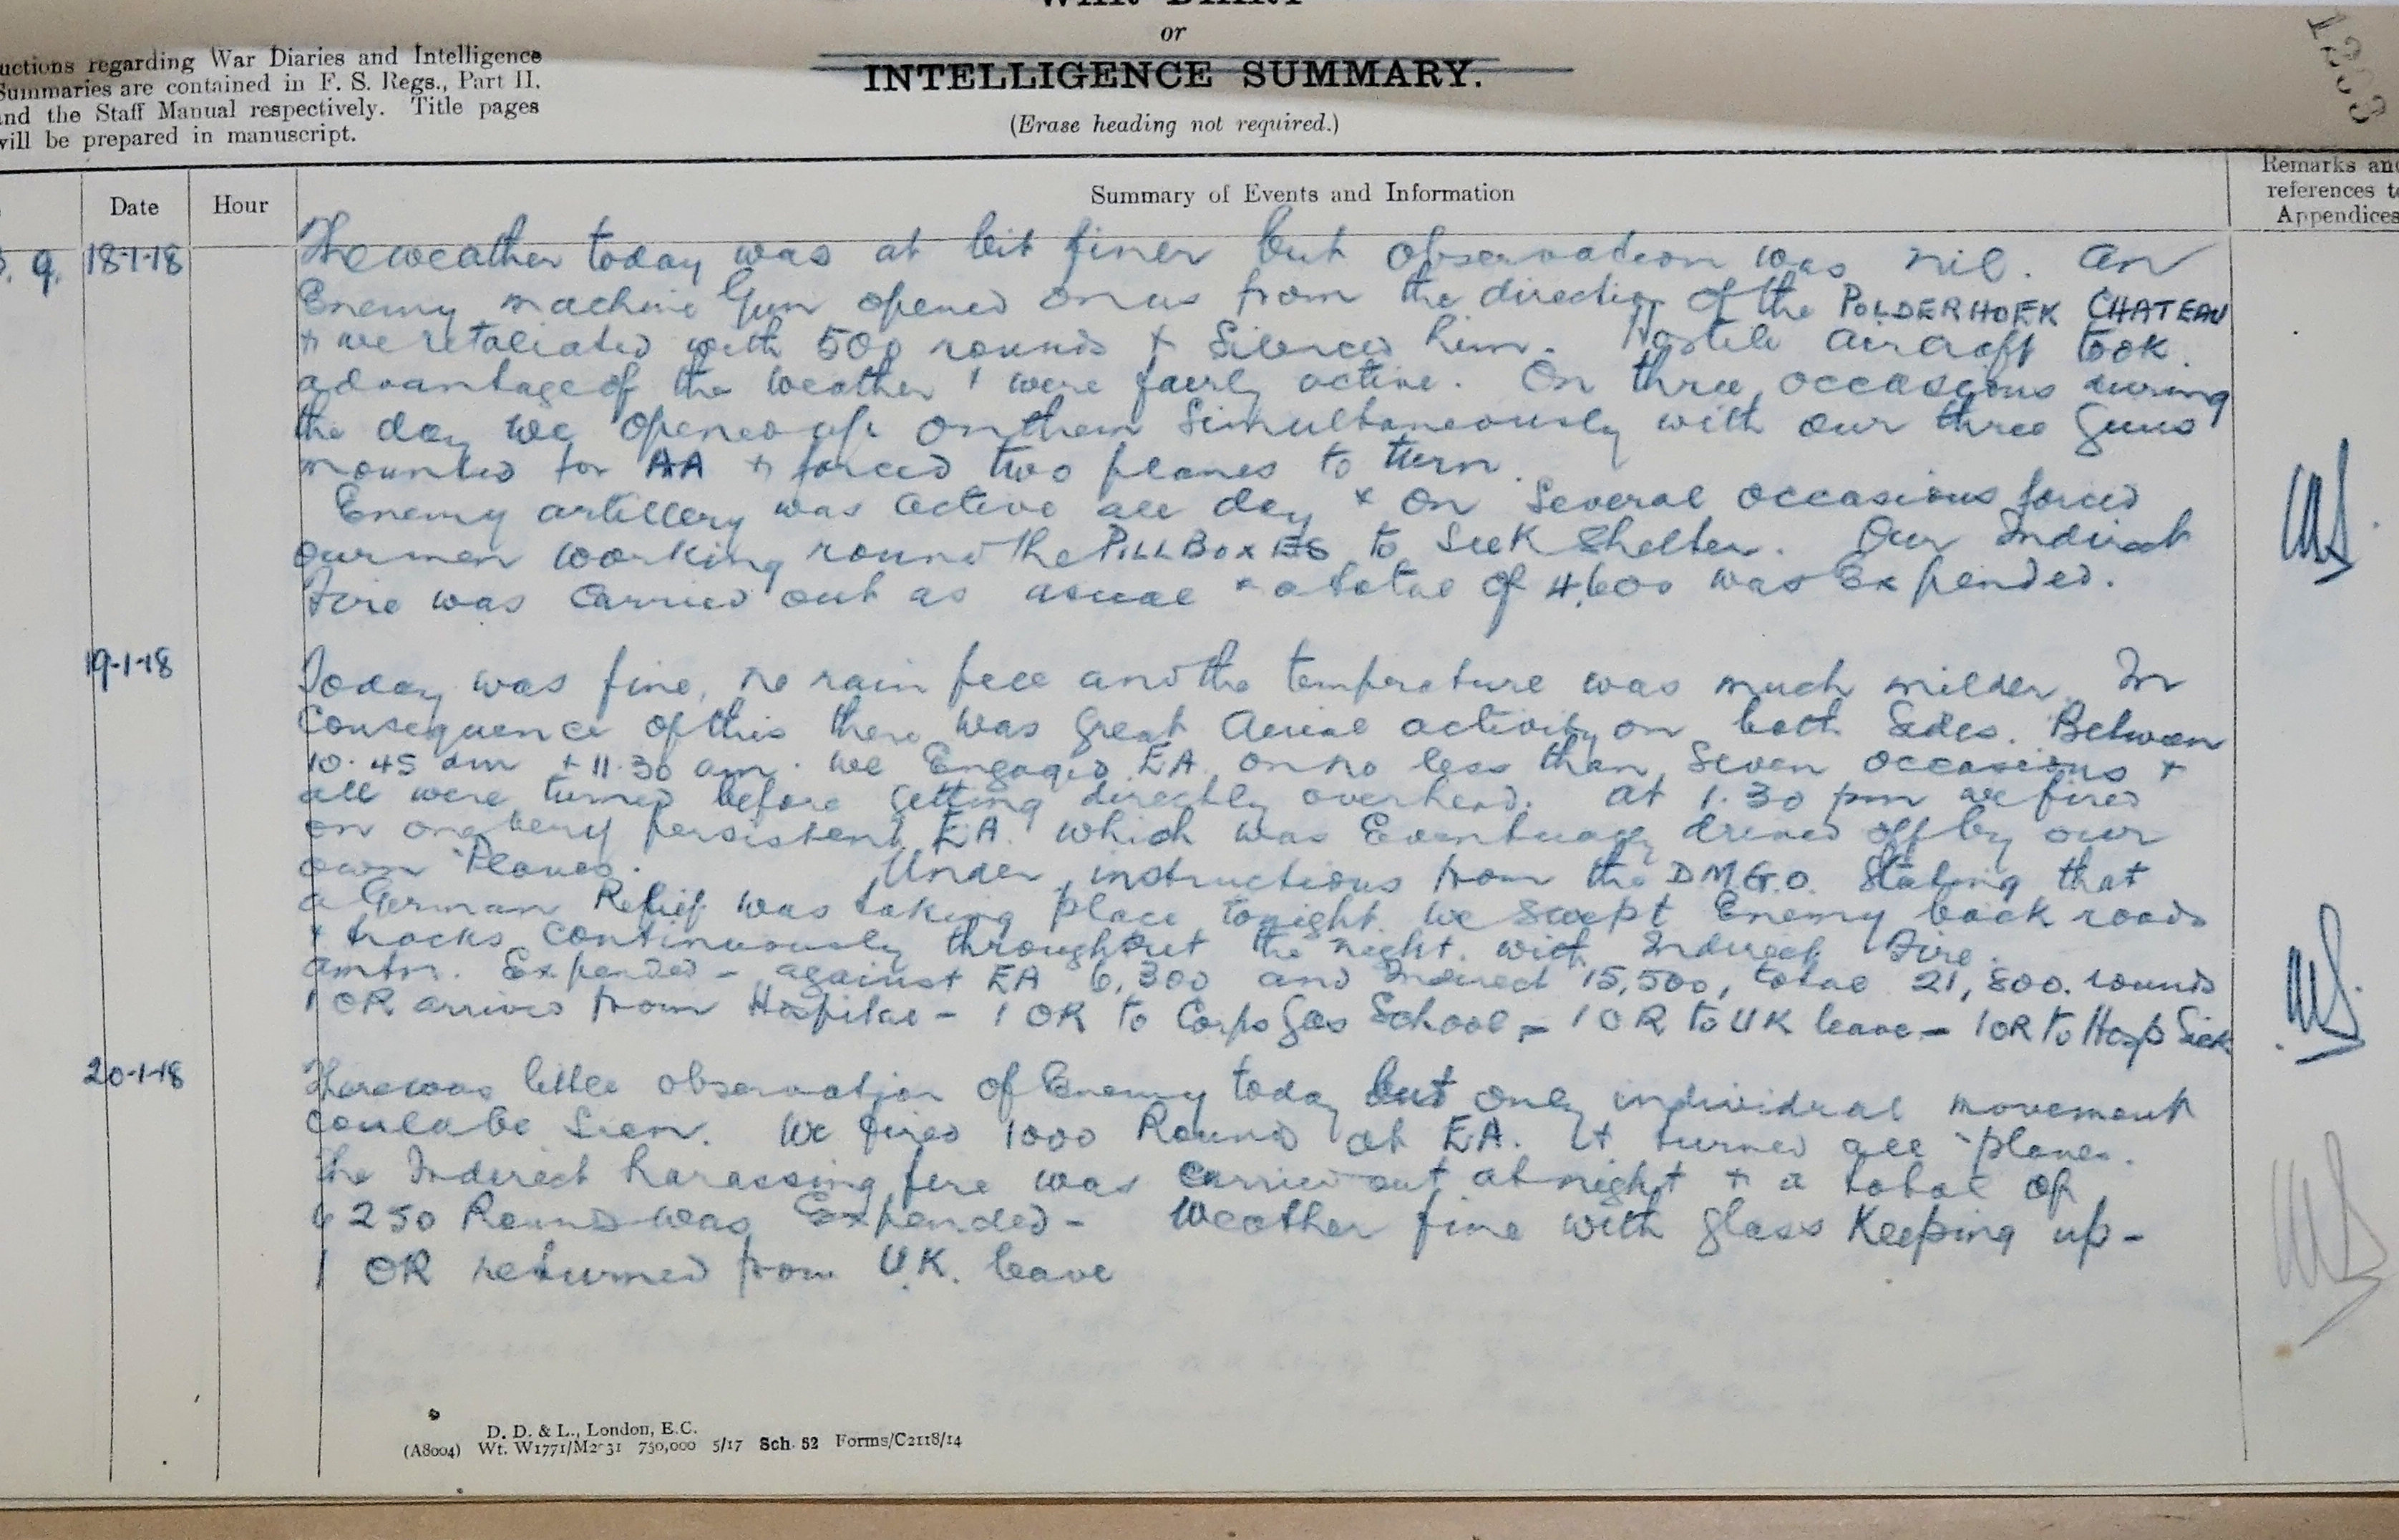 WAR DIARY
or
INTELLIGENCE SUMMARY.
(Erase heading not required.)
uctions regarding War Diaries and Intelligence
Summaries are contained in F. S. Regs., Part II.
and the Staff Manual respectively. Title pages
will be prepared in manuscript.
Date
Hour
Summary of Events and Information
Remarks and
references to
Appendices
9. 18-1-18
The weather today was at bit finer but observation was nil. An
Enemy machine Gun opened on us from the direction of the POLDERHOEK CHATEAU
+ we retaliated with 500 rounds + Silenced him. Hostile Aircraft took
advantage of the weather + were fairly active. On three occasions during
the day we opened up on them Simultaneously with our three guns
mounted for AA + forced two planes to turn.
Enemy artillery was active all day + on Several occasions forced
our men working round the PILLBOXES to Seek Shelter. Our Indirect
Fire was carried out as usual + a total of 4,600 was Expended.
19-1-18
Today was fine, no rain fell and the temperature was much milder. In
Consequence of this there was great Aerial activity on both Sides. Between
10.45 am + 11.30 am. we Engaged EA on no less than Seven occasions +
all were turned before getting directly overhead. At 1.30 pm we fired
on one very persistent EA. which was Eventually drived off by our
own 'Planes. Under instructions from the D.M.G.O. Stating that
a German Relief was taking place tonight we swept Enemy back roads
+ tracks continuously throughout the night with Indirect Fire.
Amtn. Expended - against EA 6,300 and Indirect 15,500, total 21,800. rounds
1 OR arrived from Hospital - 1 OR to Corps Gas School - 1 OR to UK leave - 1 OR to Hosp Sick
20-1-18
There was little observation of Enemy today but only individual movement
could be Seen. We fired 1000 Rounds at EA. + turned all 'planes.
The Indirect harassing fire was carried out at night + a total of
6250 Rounds was Expended - Weather fine with glass Keeping up -
1 OR returned from U.K. leave
D. D. & L., London, E.C.
(A8004) Wt. W1771/M2031 750,000 5/17 Sch. 52 Forms/C2118/14